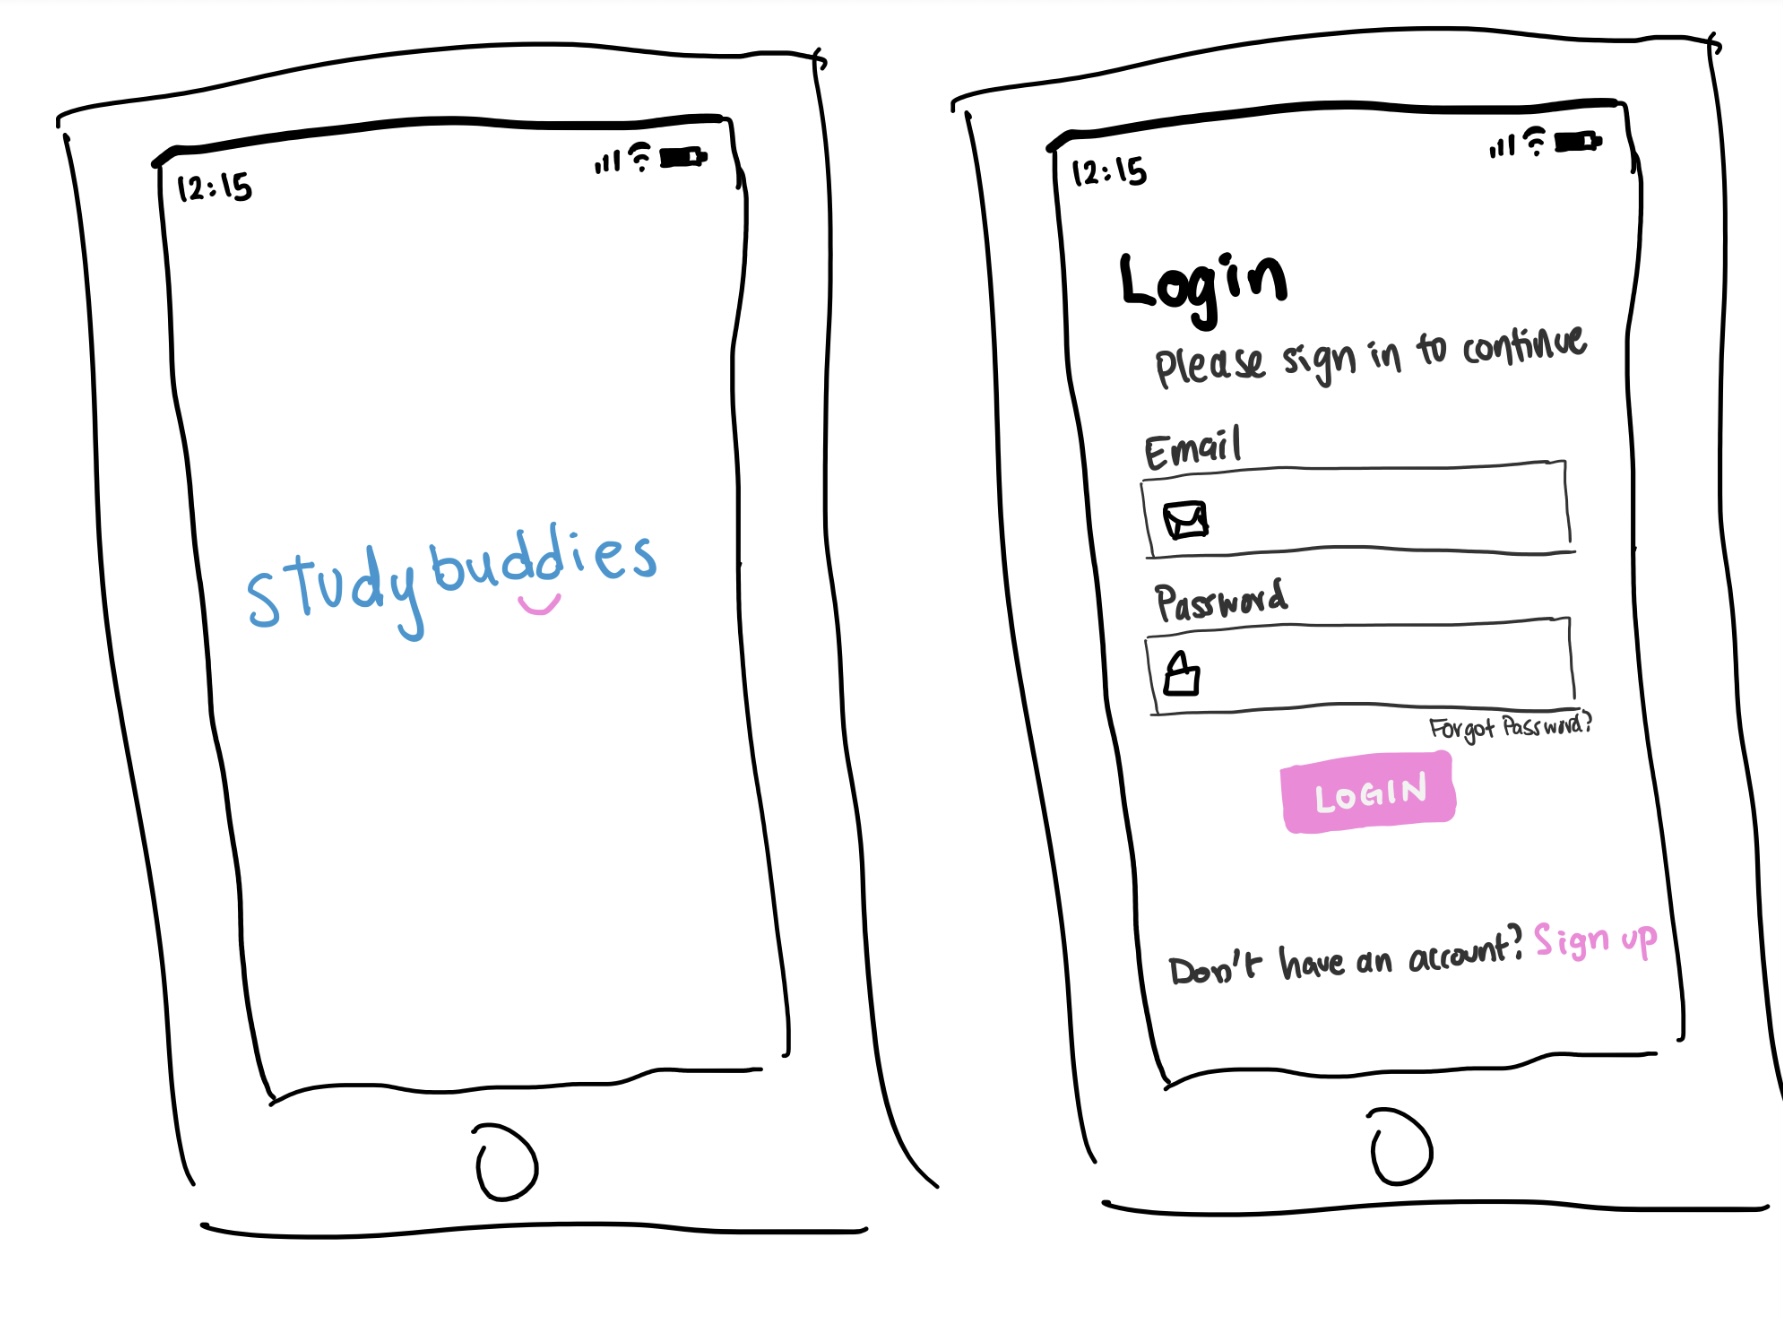 12:15
studybuddies
12:15
Login
Please sign in to continue
Email
Password
Forgot Password?
LOGIN
Don't have an account? Sign up